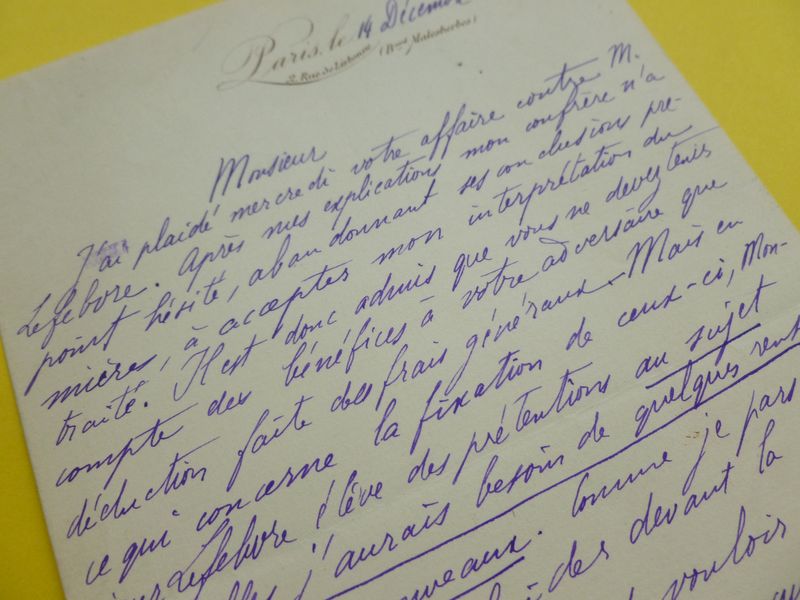 Paris, le 14 Décem
2, Rue de Lisbonne (Bould Malesherbes)
Monsieur
J'ai plaidé mercredi votre affaire contre M.
Lefebvre. Après mes explications mon confrère n'a
point hésité, abandonnant ses conclusions pre-
mières, à accepter mon interprétation du
traité. Il est donc admis que vous ne devez tenir
compte des bénéfices à votre adversaire que
déduction faite des frais généraux. Mais en
ce qui concerne la fixation de ceux-ci, Mon-
sieur Lefebvre élève des prétentions au sujet
j'aurais besoin de quelques rens
Comme je pars
des devant la
vouloir